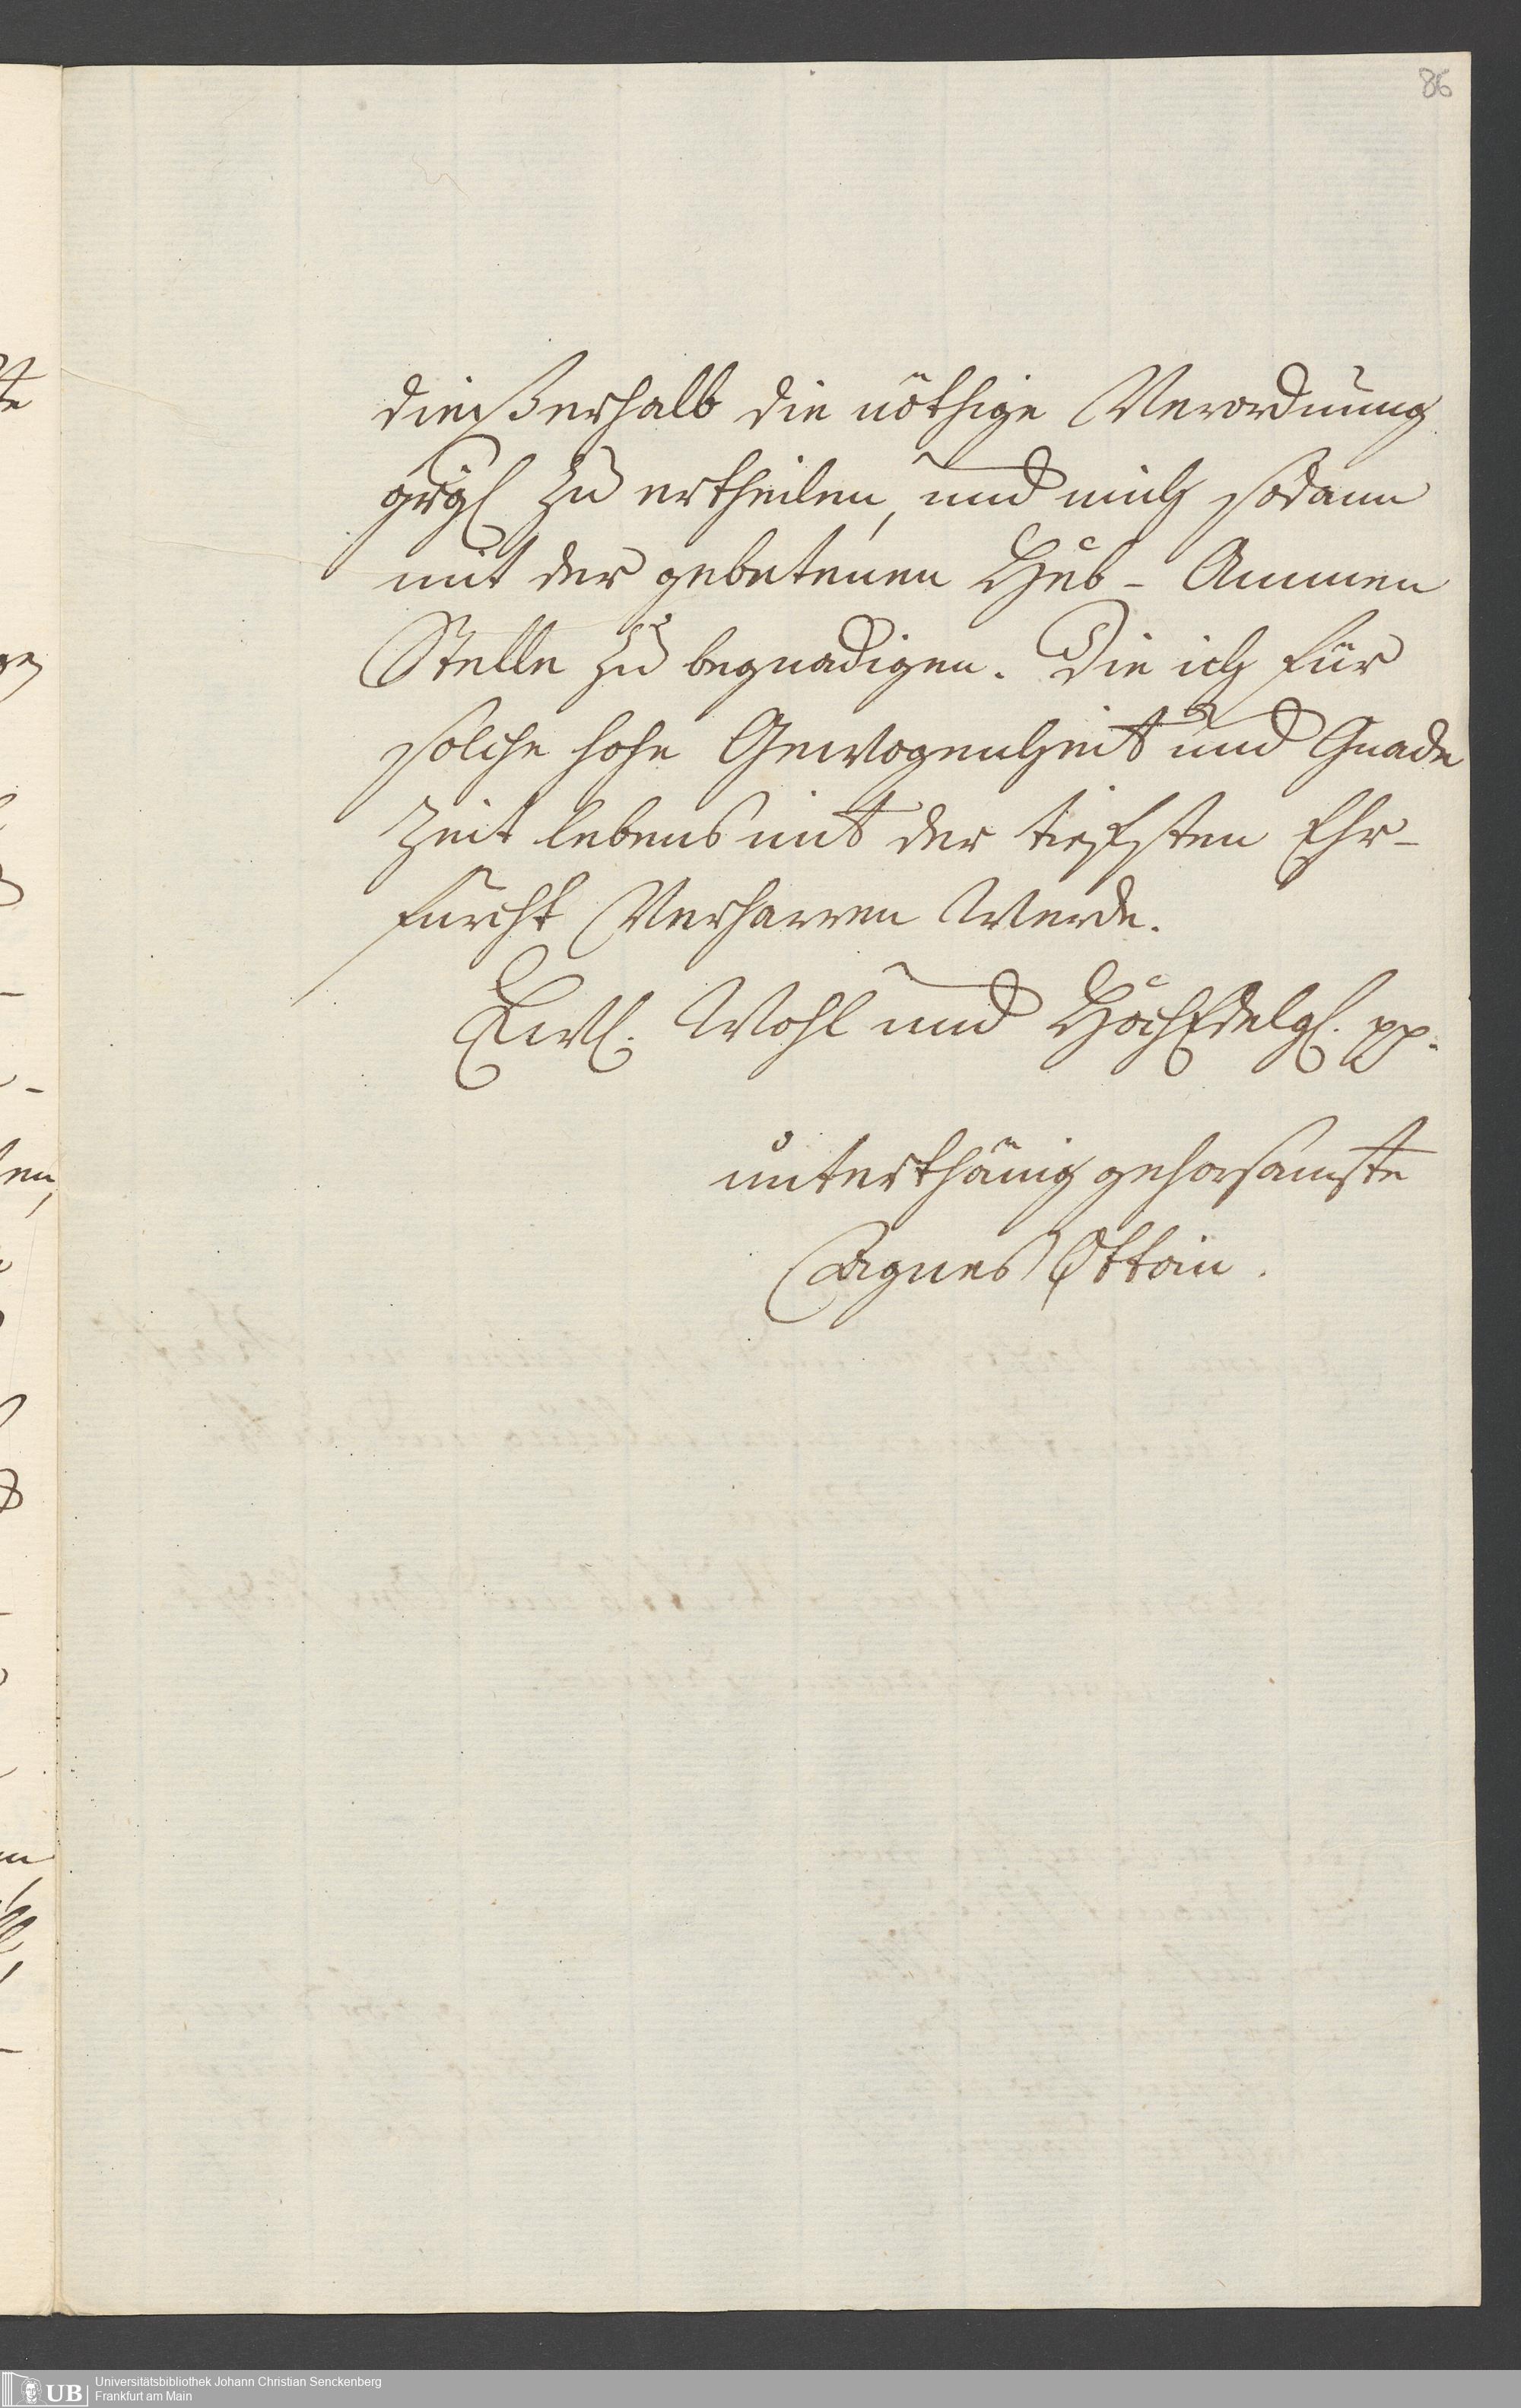 86
dießerhalb die nöthige Verordnung
zu ertheilen, und mich sodann
mit der gebetenen Heb-Ammen
Stelle zu begnadigen. Die ich für
solche hohe Gewogenheit und Gnade
Zeit lebens mit der tiefsten Ehr-
furcht Verharren Werde.
Ewl. Wohl und HochEdelgl. pp.
unterthänig gehorsamste
Agnes Ottoin.
UB
Universitätsbibliothek Johann Christian Senckenberg
Frankfurt am Main